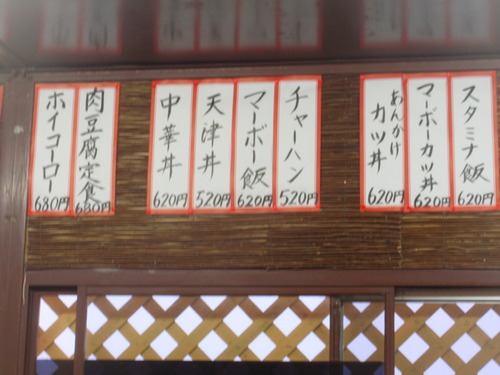 スタミナ飯 620円
マーボーカツ丼 620円
あんかけカツ丼 620円
チャーハン 520円
マーボー飯 620円
天津丼 520円
中華丼 620円
肉豆腐定食 680円
ホイコーロー 680円